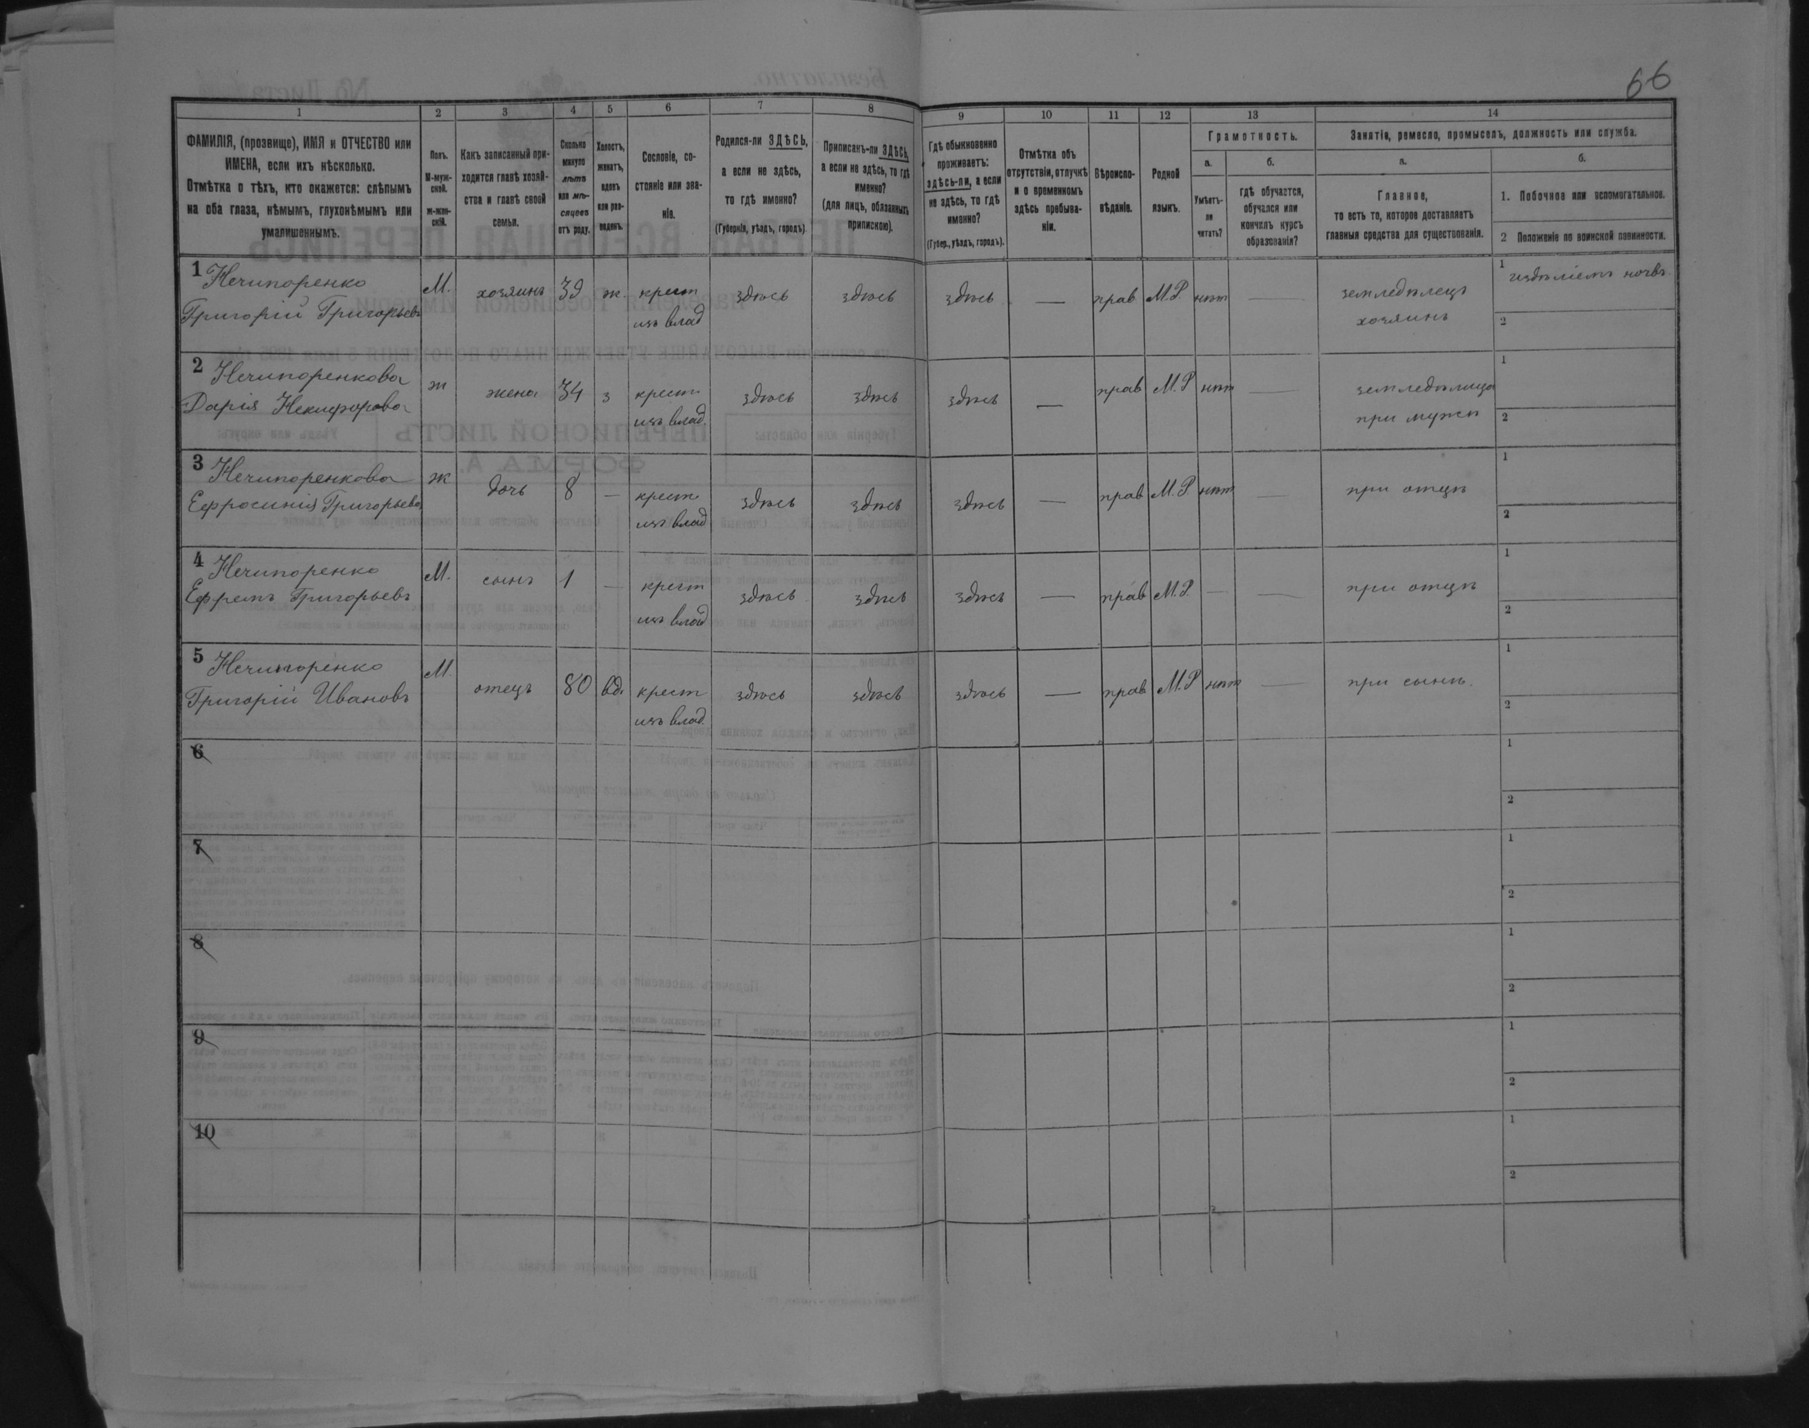 66
1 2 3 4 5 6 7 8 9 10 11 12 13 14
ФАМИЛІЯ, (прозвище), ИМЯ и ОТЧЕСТВО или
ИМЕНА, если ихъ нѣсколько.
Отмѣтка о тѣхъ, кто окажется: слѣпымъ
на оба глаза, нѣмымъ, глухонѣмымъ или
умалишеннымъ.
Полъ.
М-муж-
ской.
ж-жен-
скій.
Какъ записанный при-
ходится главѣ хозяй-
ства и главѣ своей
семьи.
Сколько
минуло
лѣтъ
или мѣ-
сяцевъ
отъ роду.
Холостъ,
женатъ,
вдовъ
или раз-
веденъ.
Сословіе, со-
стояніе или зва-
ніе.
Родился-ли ЗДѢСЬ,
а если не здѣсь,
то гдѣ именно?
(Губернія, уѣздъ, городъ).
Приписанъ-ли ЗДѢСЬ,
а если не здѣсь, то гдѣ
именно?
(для лицъ, обязанныхъ
припиской).
Гдѣ обыкновенно
проживаетъ:
здѣсь-ли, а если
не здѣсь, то гдѣ
именно?
(Губер., уѣздъ, городъ).
Отмѣтка объ
отсутствіи, отлучкѣ
и о временномъ
здѣсь пребыва-
ніи.
Вѣроиспо-
вѣданіе.
Родной
языкъ.
Грамотность.
а.
Умѣетъ-
ли
читать?
б.
гдѣ обучается,
обучался или
кончилъ курсъ
образованія?
Занятія, ремесло, промыселъ, должность или служба.
а.
Главное,
то есть то, которое доставляетъ
главныя средства для существованія.
б.
1. Побочное или вспомогательное.
2 Положеніе по воинской повинности.
1 Нечипоренко М. хозяинъ 39 ж. крест здѣсь здѣсь здѣсь — прав М.Р. нѣт — земледѣлецъ 1
Григорій Григорьевъ изъ влад хозяинъ 2
2 Нечипоренкова ж жена 34 з крест здѣсь здѣсь здѣсь — прав М.Р нѣт — земледѣлица 1
Дарія Никифорова изъ влад. при мужѣ 2
3 Нечипоренкова ж дочь 8 — крест здѣсь здѣсь здѣсь — прав М.Р нѣт — при отцѣ 1
Ефросинія Григорьева изъ влад 2
4 Нечипоренко М. сынъ 1 — крест здѣсь здѣсь здѣсь — прав М.Р. — — при отцѣ 1
Ефремъ Григорьевъ изъ влад 2
5 Нечипоренко М. отецъ 80 вд. крест здѣсь здѣсь здѣсь — прав М.Р нѣт — при сынѣ 1
Григорій Ивановъ изъ влад. 2
6 1
2
7 1
2
8 1
2
9 1
2
10 1
2